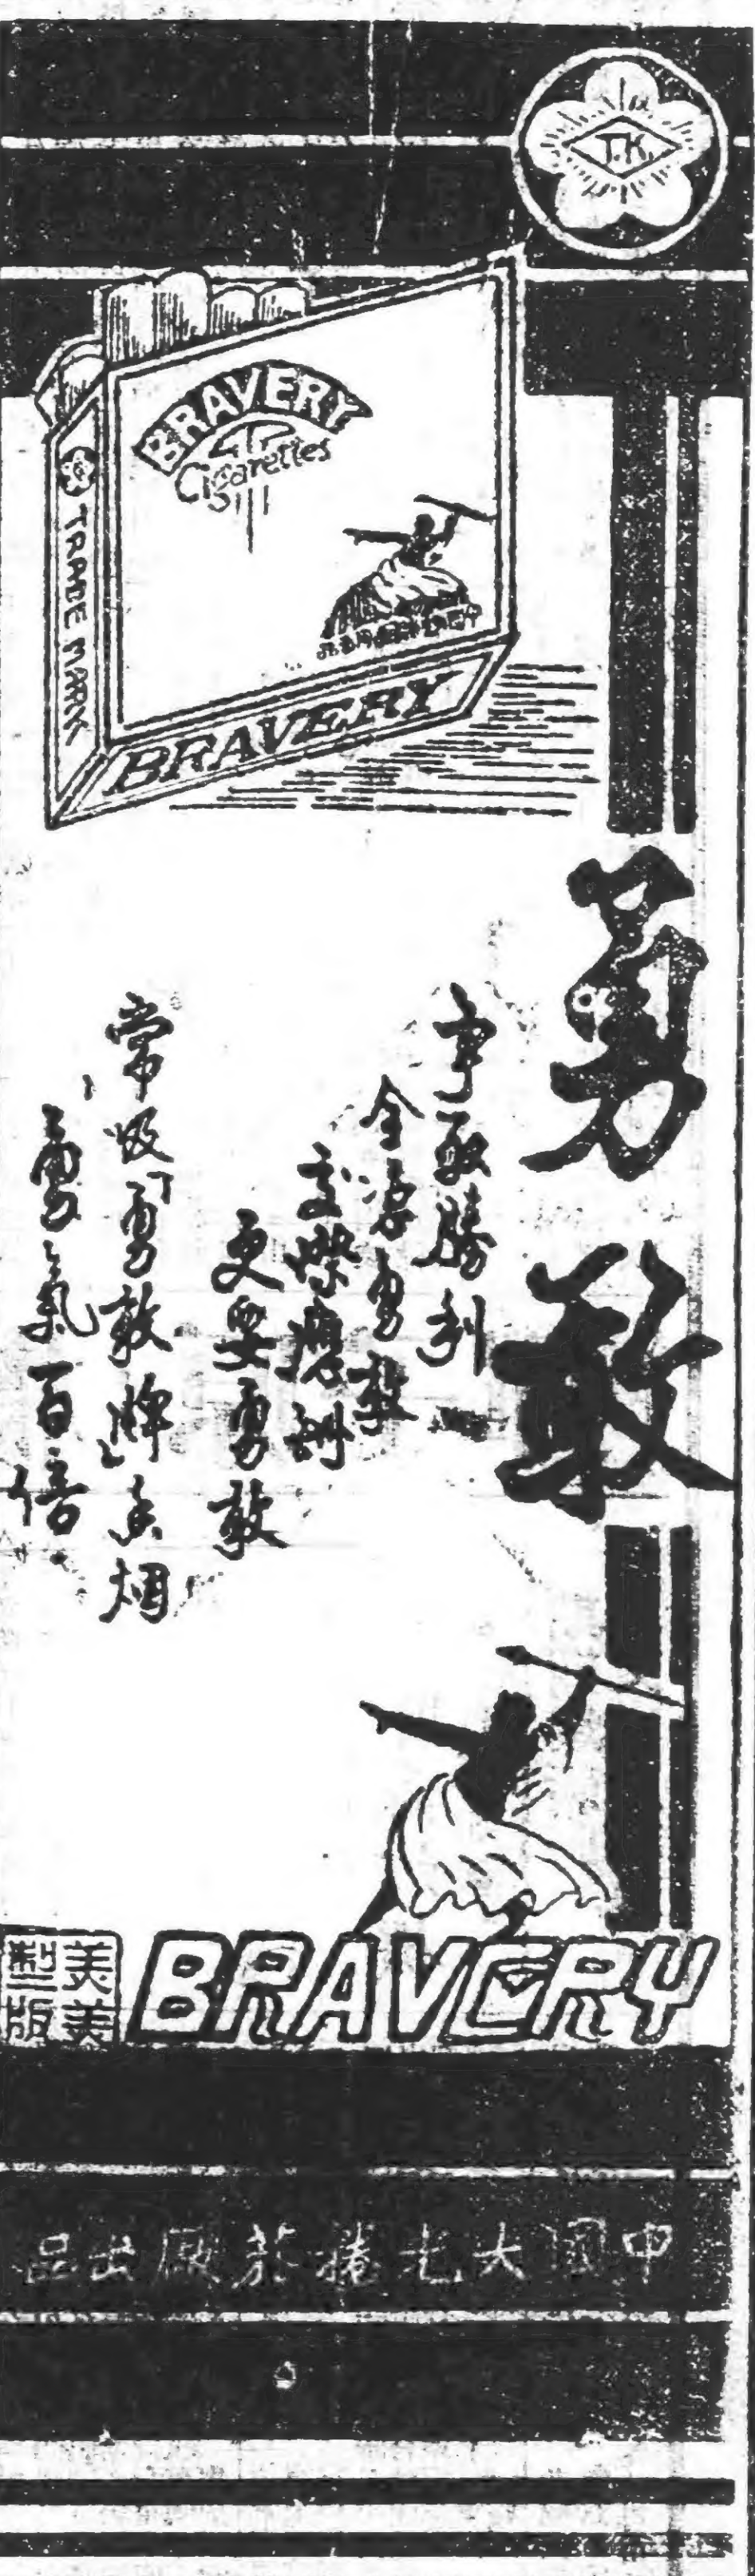 T.K.
BRAVERY
Cigarettes
TRADE MARK
BRAVERY
勇敢
爭取勝利
全憑勇敢
交際應酬
更要勇敢
常吸「勇敢牌」香烟
勇氣百倍
BRAVERY
美美
製版
中國大光勝菸厰出品